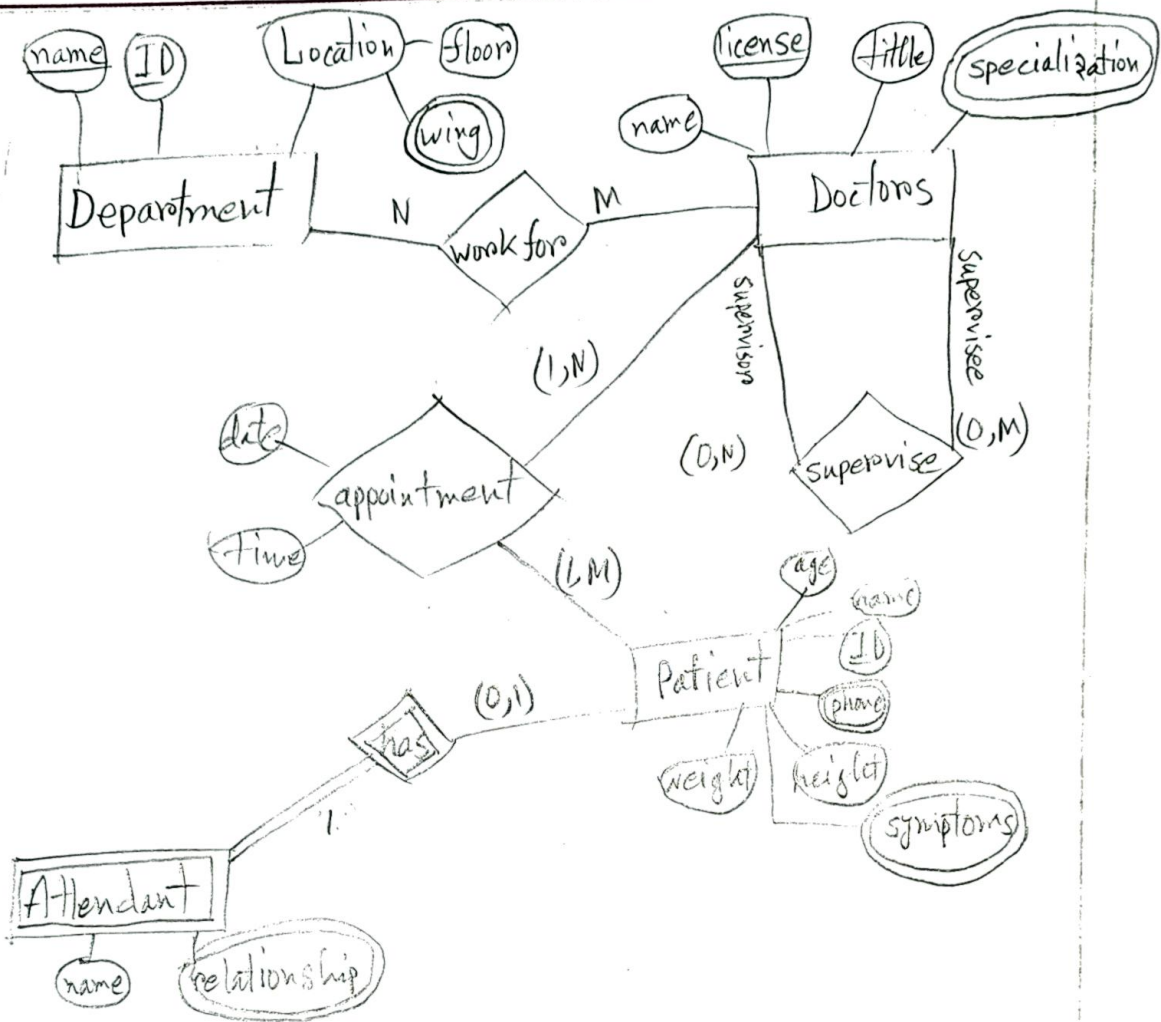 name
ID
Location
floor
wing
license
tittle
specialization
name
Department
N
work for
M
Doctors
supervisor
supervisee
(1,N)
(0,N)
(0,M)
supervise
date
appointment
time
(1,M)
age
name
ID
Patient
phone
weight
height
symptoms
has
(0,1)
1
Attendant
name
relationship